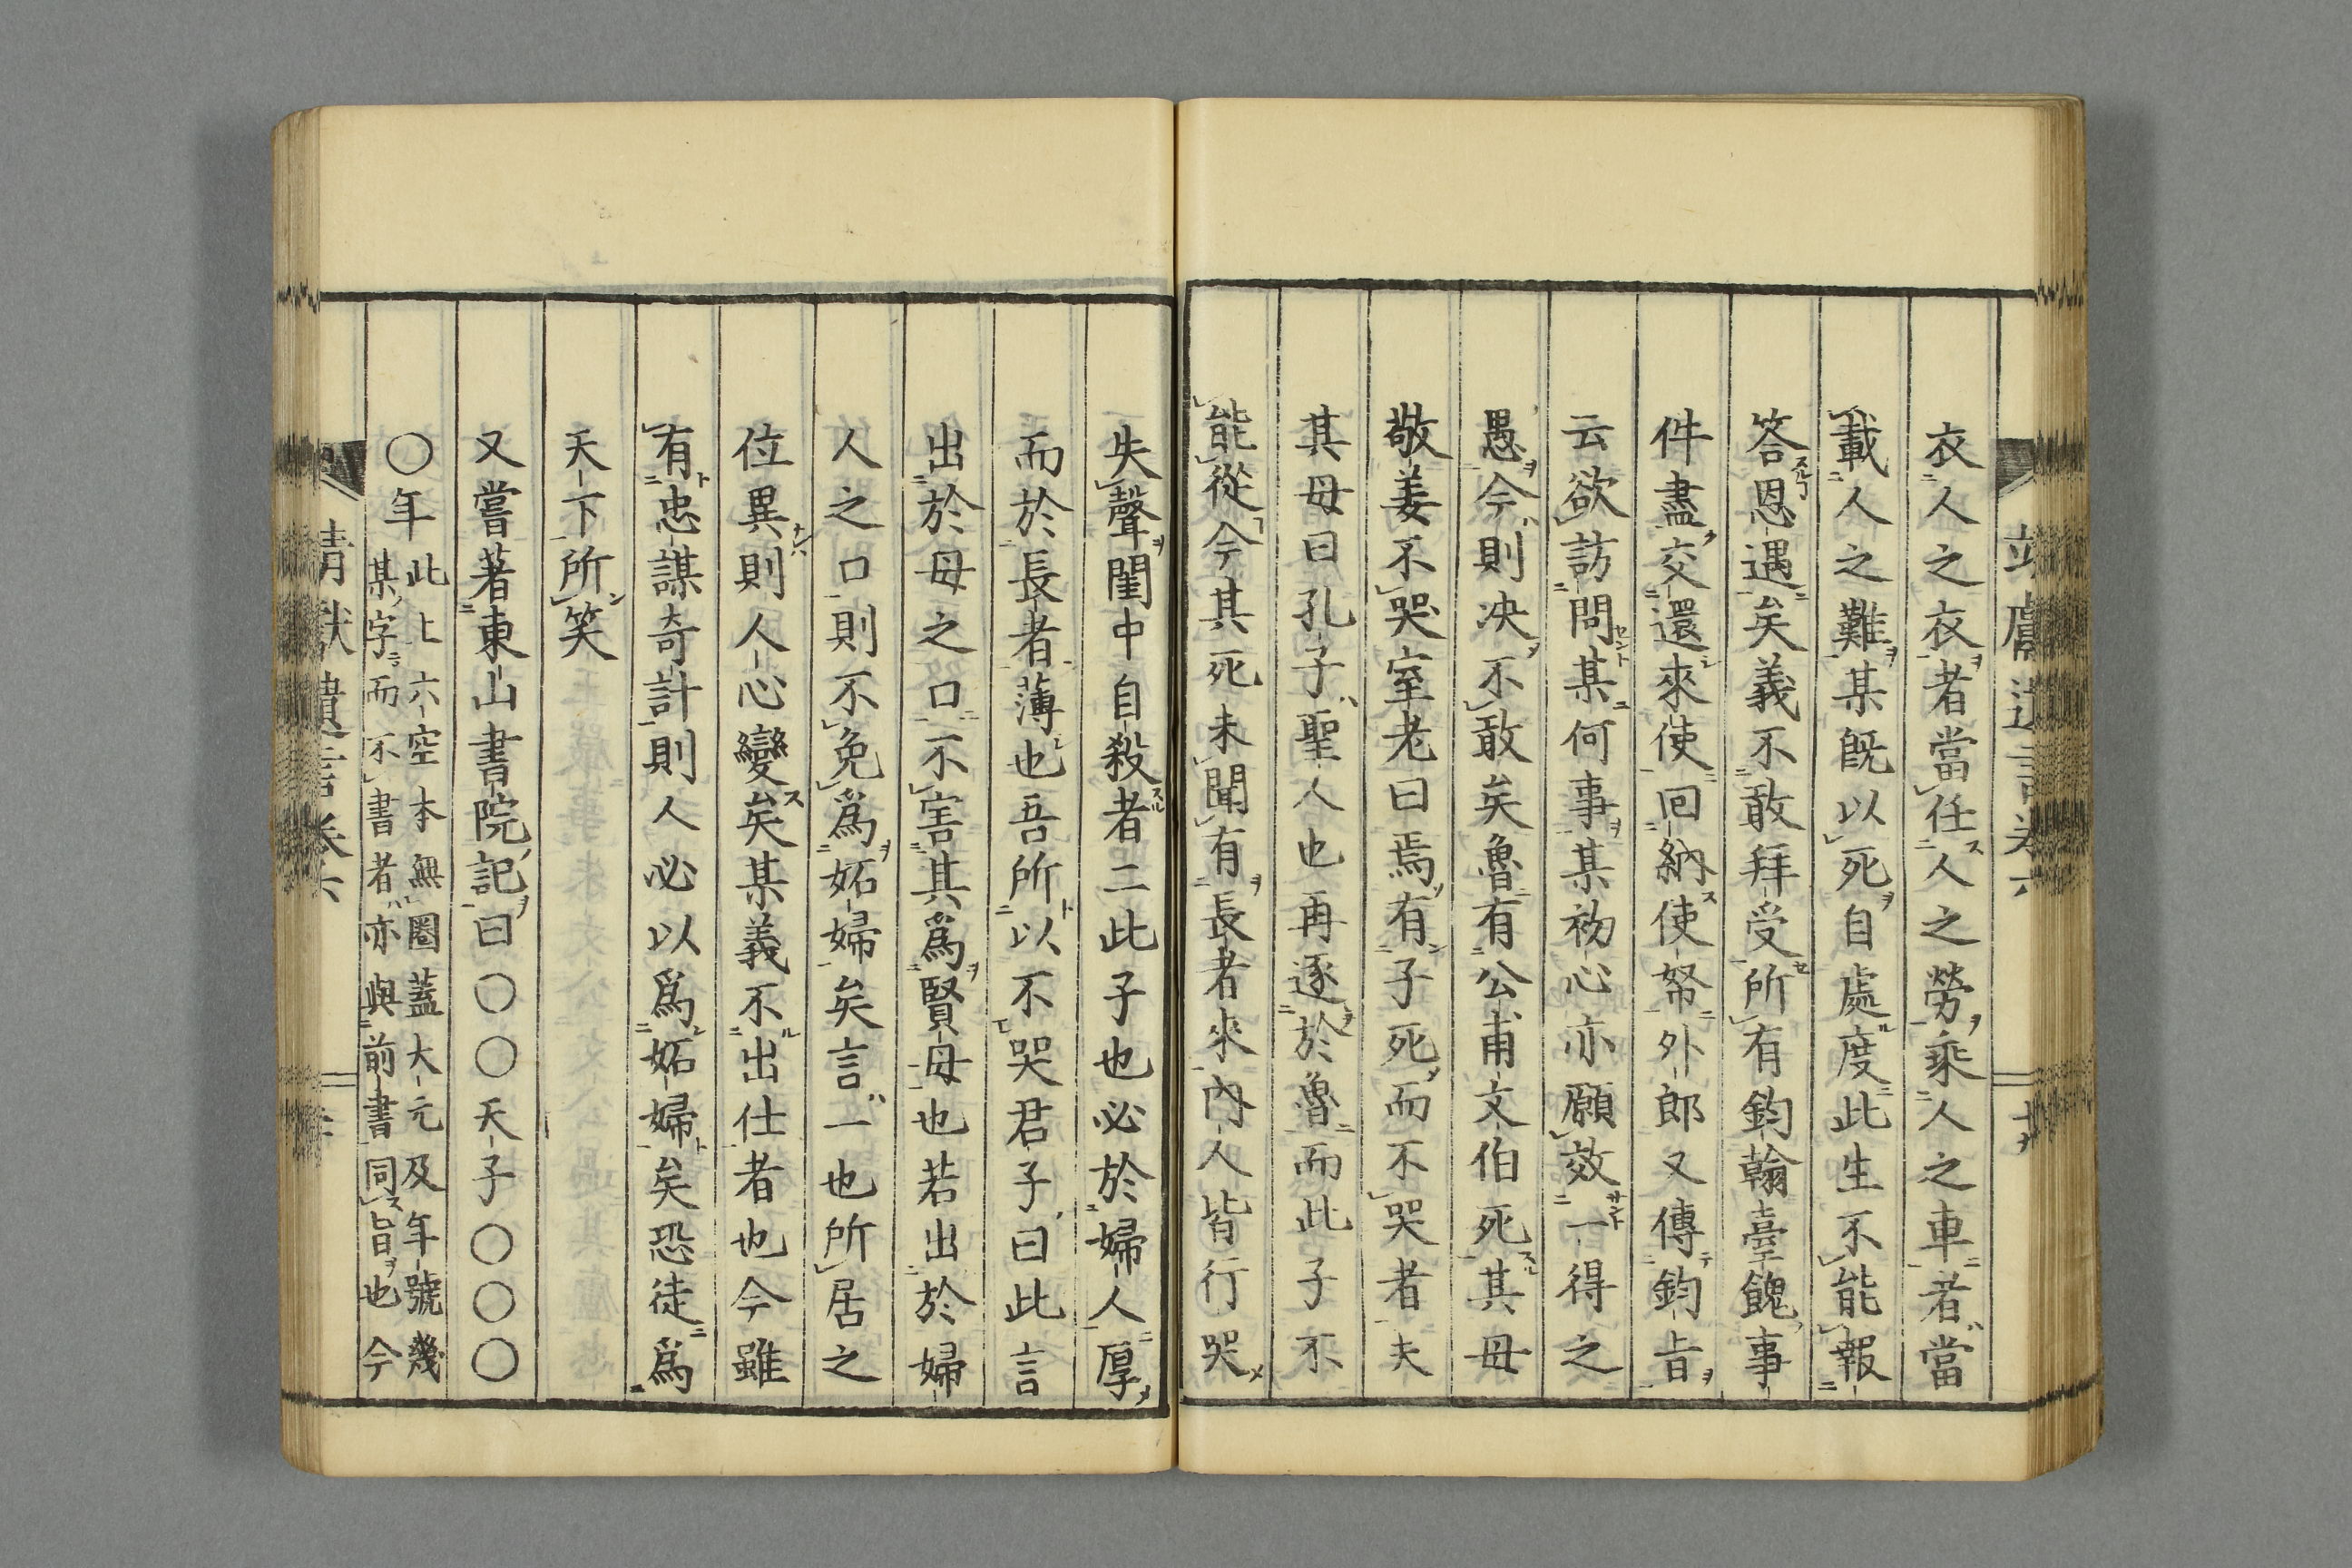 衣人之衣者當任人之勞乘人之車者當
載人之難某旣以死自處度此生不能報
答恩遇矣義不敢拜受所有鈞翰臺餽事
件盡交還來使回納使帑外郎又傳鈞旨
云欲訪問某何事某初心亦願效一得之
愚今則决不敢矣魯有公甫文伯死其母
敬姜不哭室老曰焉有子死而不哭者夫
其母曰孔子聖人也再逐於魯而此子不
能從今其死未聞有長者來內人皆行哭
失聲閨中自殺者二此子也必於婦人厚
而於長者薄也吾所以不哭君子曰此言
出於母之口不害其爲賢母也若出於婦
人之口則不免爲妬婦矣言一也所居之
位異則人心變矣某義不出仕者也今雖
有忠謀奇計則人必以爲妬婦矣恐徒爲
天下所笑
又嘗著東山書院記曰〇〇天子〇〇〇
〇年此上六空本無圈蓋大元及年號幾
某字而不書者亦與前書同旨也今